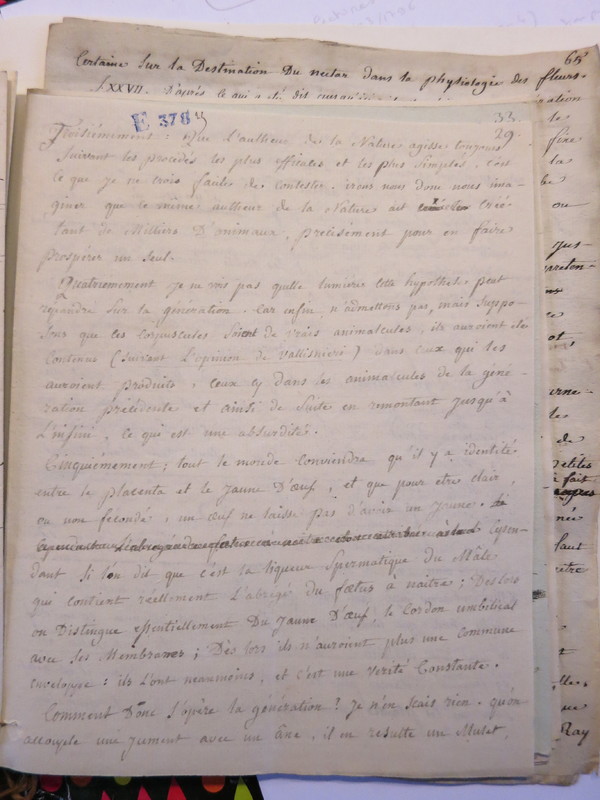 65
Certaine Sur la Destination Du nectar dans la physiologie des fleurs.
LXXVII. D'après ce qui a été dit
E 378
33.
29.
Troisiémement : Que L'autheur de la Nature agisse toujours
Suivant les procédés les plus efficaces et les plus Simples, c'est
ce que je ne crois faute de contester. irons nous donc nous ima-
giner que le même autheur de la Nature ait créé
tant de Milliers D'animaux, précisément pour en faire
prospérer un seul.
Quatriemement je ne vois pas quelle lumiere cette hypothese peut
repandre Sur la génération. Car enfin, n'admettons pas, mais Suppo-
sons que les corpuscules Soient de vrais animalcules, ils auroient été
Contenus (Suivant L'opinion de Vallisnieri) dans ceux qui les
auroient produits, ceux cy dans les animalcules de la géné-
ration précédente et ainsi de Suite en remontant jusqu'à
L'infini, ce qui est une absurdité.
Cinquiémement ; tout le monde conviendra qu'il y a identité
entre le placenta et le Jaune D'œuf, et que pour etre clair,
ou non fécondé, un œuf ne laisse pas d'avoir un jaune.
Cepen-
dant Si l'on dit que c'est la liqueur Spermatique du Mâle
qui contient réellement L'abrégé du fœtus à naître ; Des lors
on Distingue essentiellement Du Jaune D'œuf, le Cordon umbilical
avec ses Membranes ; Dès lors ils n'auroient plus une commune
enveloppe : ils L'ont neanmoins, et c'est une Verité Constante.
Comment Donc S'opère la génération ? Je n'en scais rien. qu'on
accouple une jument avec un Ane, il en resulte un Mulet,
ration
le
fire
la
ou
jus-
ce
de
petites
à fait
née
faut
Ray